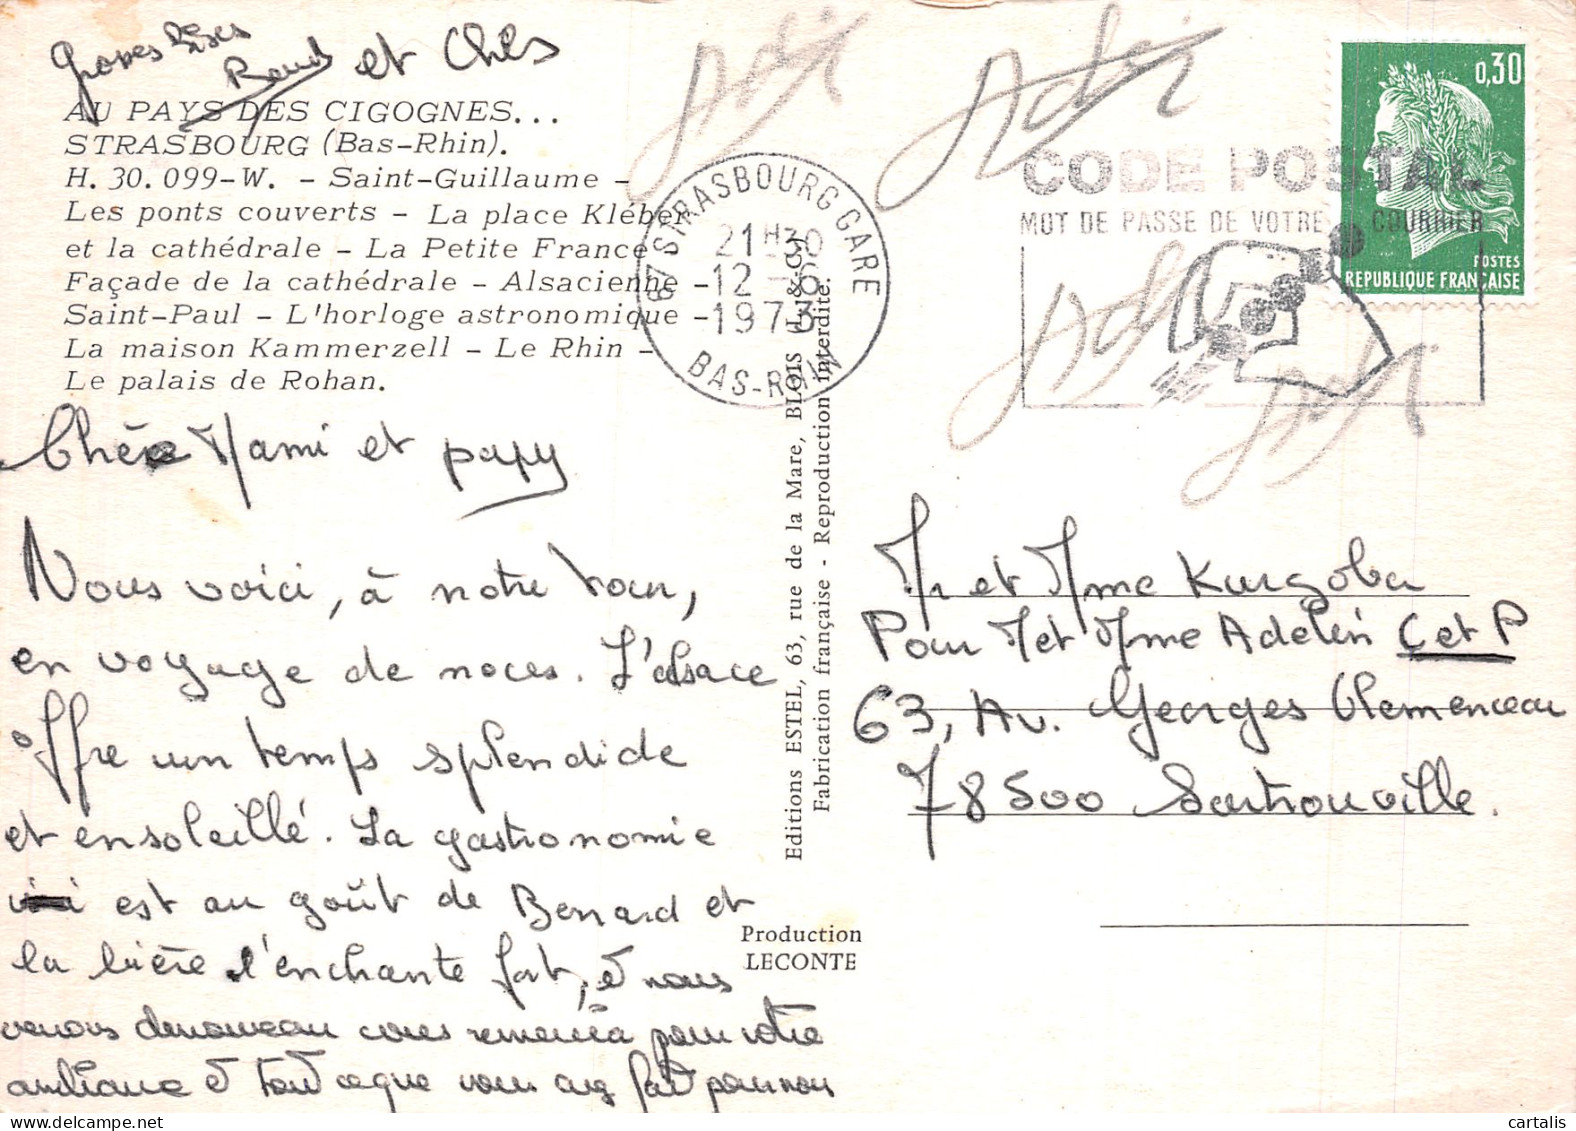 Grosses bises
Bernard et Chts
AU PAYS DES CIGOGNES...
STRASBOURG (Bas-Rhin).
H. 30. 099-W. - Saint-Guillaume -
Les ponts couverts - La place Kléber
et la cathédrale - La Petite France
Façade de la cathédrale - Alsacienne -
Saint-Paul - L'horloge astronomique -
La maison Kammerzell - Le Rhin -
Le palais de Rohan.
Chère Mami et papy
Nous voici, à notre tour,
en voyage de noces. L'alsace
offre un temps splendide
et ensoleillé. La gastronomie
est au goût de Bernard et
la bière l'enchante fort, et nous
venons de nouveau vous remercier pour votre
ambiance et tout ce que vous avez fait pour nous
Editions ESTEL, 63, rue de la Mare, BLOIS (L.&-C.)
Fabrication française - Reproduction interdite.
Production
LECONTE
67 STRASBOURG GARE
21H30
12-6
1973
BAS-RHIN
CODE POSTAL
MOT DE PASSE DE VOTRE COURRIER
0,30
POSTES
REPUBLIQUE FRANÇAISE
Adi
Adi
Adi
Adi
Mr et Mme Kurgoba
Pour M et Mme Adelin C et P
63, Av. Georges Clemenceau
78500 Sartrouville.
cartalis.com